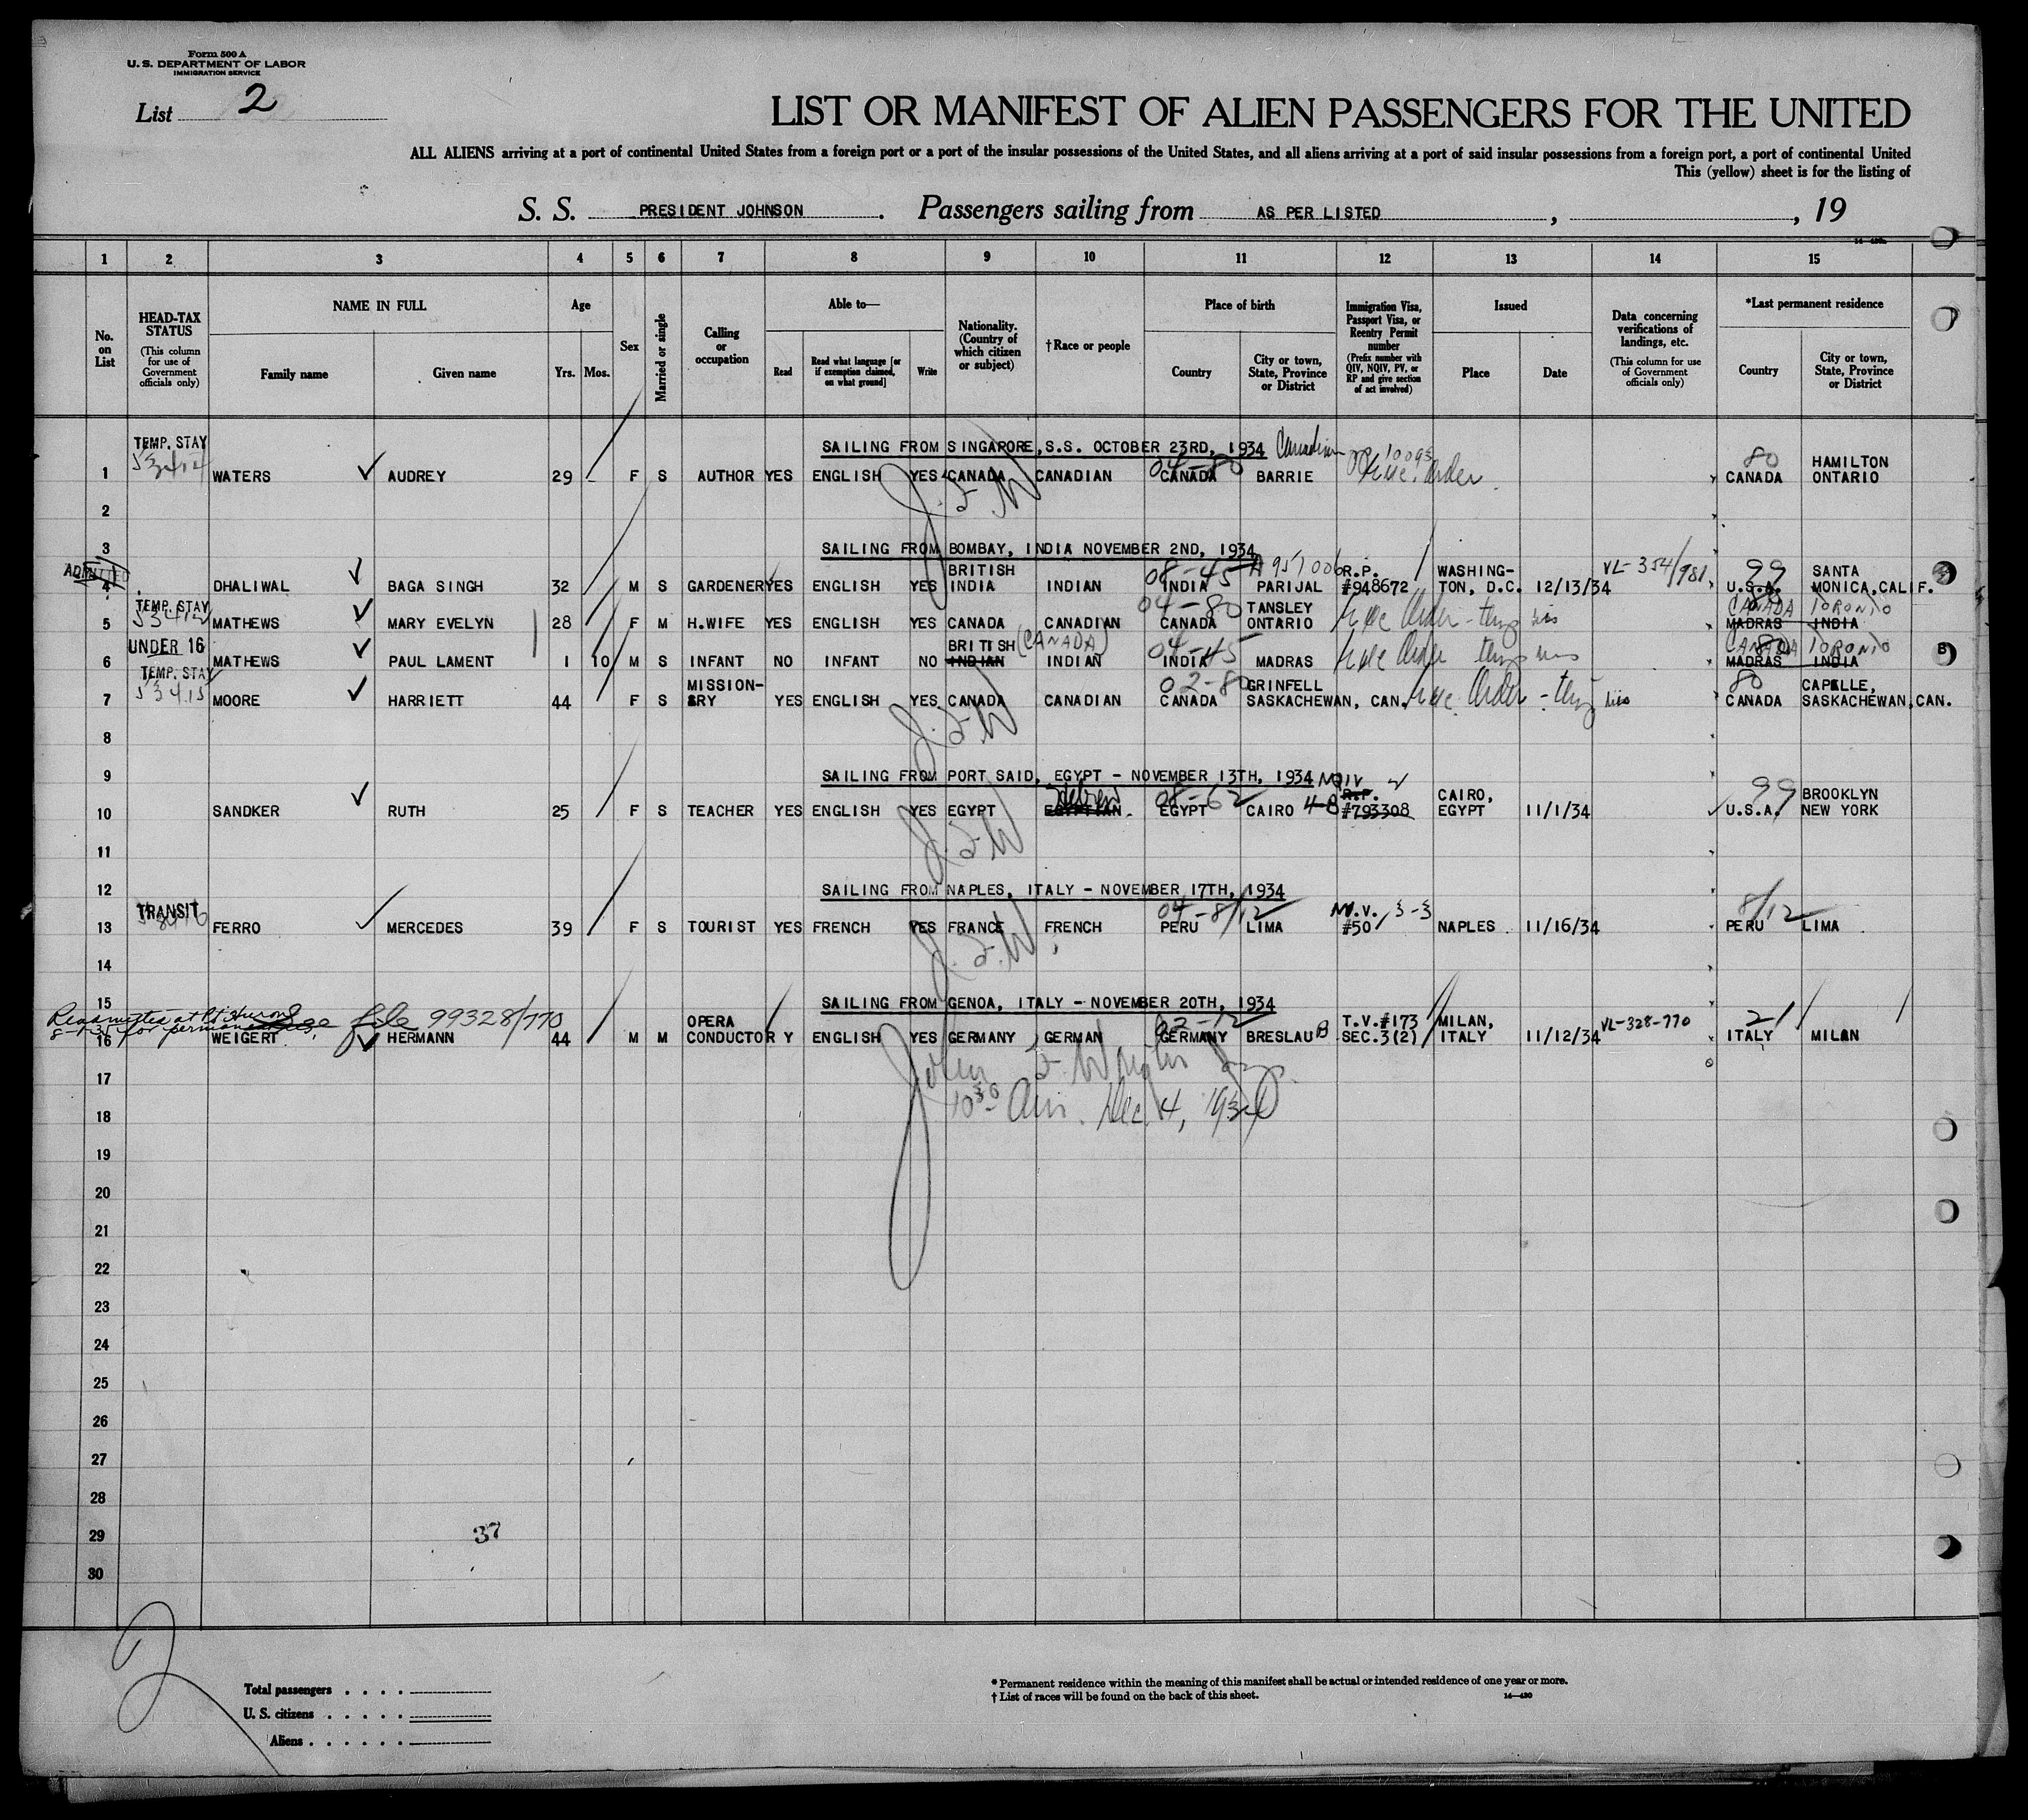 Form 500 A
U. S. DEPARTMENT OF LABOR
IMMIGRATION SERVICE
List 2
LIST OR MANIFEST OF ALIEN PASSENGERS FOR THE UNITED
ALL ALIENS arriving at a port of continental United States from a foreign port or a port of the insular possessions of the United States, and all aliens arriving at a port of said insular possessions from a foreign port, a port of continental United
This (yellow) sheet is for the listing of
S. S. PRESIDENT JOHNSON. Passengers sailing from AS PER LISTED, , 19
1 2 3 4 5 6 7 8 9 10 11 12 13 14 15
No. on List
HEAD-TAX STATUS (This column for use of Government officials only)
NAME IN FULL Family name Given name
Age Yrs. Mos.
Sex
Married or single
Calling or occupation
Able to— Read Read what language [or if exemption claimed, on what ground] Write
Nationality. (Country of which citizen or subject)
†Race or people
Place of birth Country City or town, State, Province or District
Immigration Visa, Passport Visa, or Reentry Permit number (Prefix number with QIV, NQIV, PV, or RP and give section of act involved)
Issued Place Date
Data concerning verifications of landings, etc. (This column for use of Government officials only)
*Last permanent residence Country City or town, State, Province or District
SAILING FROM SINGAPORE,S.S. OCTOBER 23RD, 1934 Canadian
1 TEMP. STAY WATERS AUDREY 29 F S AUTHOR YES ENGLISH YES CANADA CANADIAN 04-80 CANADA BARRIE Order 80 CANADA HAMILTON ONTARIO
2
3 SAILING FROM BOMBAY, INDIA NOVEMBER 2ND, 1934
4 ADMITTED DHALIWAL BAGA SINGH 32 M S GARDENER YES ENGLISH YES BRITISH INDIA INDIAN 08-45 INDIA PARIJAL R.P. #948672 WASHINGTON, D.C. 12/13/34 VL-354/981 99 U.S.A. SANTA MONICA,CALIF.
5 TEMP. STAY MATHEWS MARY EVELYN 28 F M H.WIFE YES ENGLISH YES CANADA CANADIAN 04-80 CANADA TANSLEY ONTARIO Order CANADA TORONTO MADRAS INDIA
6 UNDER 16 MATHEWS PAUL LAMENT 1 10 M S INFANT NO INFANT NO BRITISH (CANADA) INDIAN INDIAN 04-45 INDIA MADRAS Order CANADA TORONTO MADRAS INDIA
7 TEMP. STAY 53415 MOORE HARRIETT 44 F S MISSION-ARY YES ENGLISH YES CANADA CANADIAN 02-80 CANADA GRINFELL SASKACHEWAN, CAN. Order 80 CANADA CAPELLE, SASKACHEWAN,CAN.
8
9 SAILING FROM PORT SAID, EGYPT - NOVEMBER 13TH, 1934
10 SANDKER RUTH 25 F S TEACHER YES ENGLISH YES EGYPT Hebrew EGYPTIAN 08-62 EGYPT CAIRO NQIV 4-8 R.P. #793308 CAIRO, EGYPT 11/1/34 99 U.S.A. BROOKLYN NEW YORK
11
12 SAILING FROM NAPLES, ITALY - NOVEMBER 17TH, 1934
13 TRANSIT FERRO MERCEDES 39 F S TOURIST YES FRENCH YES FRANCE FRENCH 04-8/12 PERU LIMA #50 3-3 NAPLES 11/16/34 8/12 PERU LIMA
14
15 SAILING FROM GENOA, ITALY - NOVEMBER 20TH, 1934
Readmitted at Pt. Huron
for permanent file 99328/770
16 WEIGERT HERMANN 44 M M OPERA CONDUCTOR Y ENGLISH YES GERMANY GERMAN 02-12 GERMANY BRESLAU T.V.#173 SEC.3(2) MILAN, ITALY 11/12/34 VL-328-770 ITALY MILAN
17 John
18 10 30 Am. Dec. 4, 1934
19
20
21
22
23
24
25
26
27
28
29 37
30
2
Total passengers
U. S. citizens
Aliens
* Permanent residence within the meaning of this manifest shall be actual or intended residence of one year or more.
† List of races will be found on the back of this sheet.
14—430